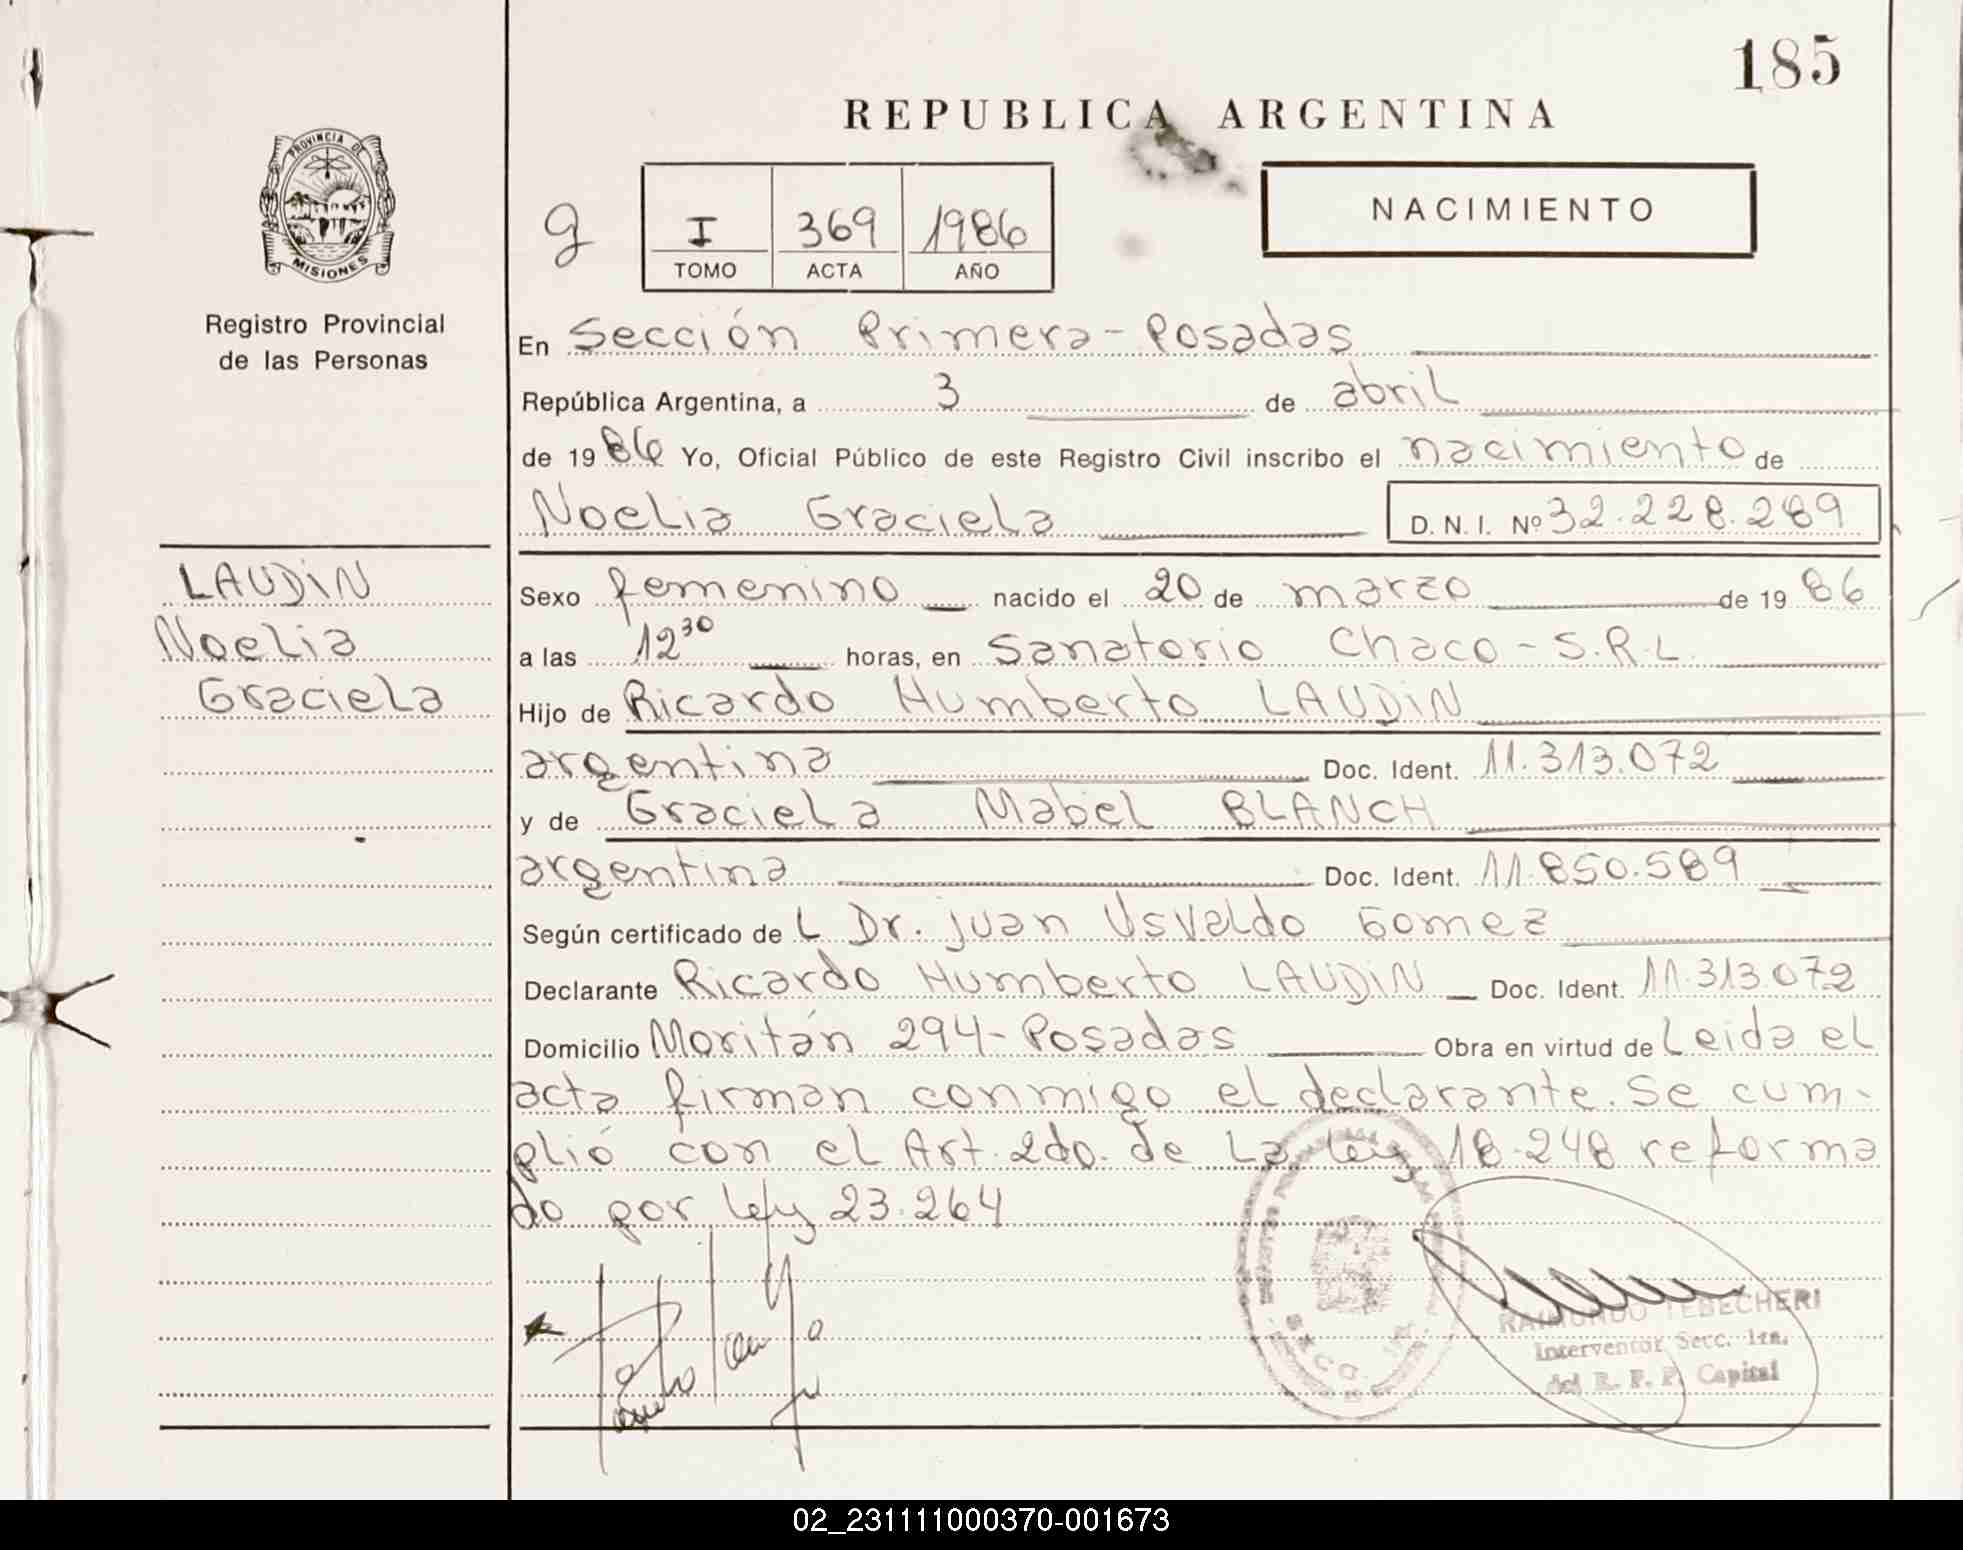 185
REPUBLICA ARGENTINA
PROVINCIA DE
MISIONES
Registro Provincial
de las Personas
g
I 369 1986
TOMO ACTA AÑO
NACIMIENTO
En Sección Primera - Posadas
República Argentina, a 3 de abril
de 1986 Yo, Oficial Público de este Registro Civil inscribo el nacimiento de
Noelia Graciela D. N. I. Nº 32.228.289
LAUDIN
Noelia
Graciela
Sexo femenino nacido el 20 de marzo de 1986
a las 12 30 horas, en Sanatorio Chaco - S.R.L.
Hijo de Ricardo Humberto LAUDIN
argentina Doc. Ident. 11.313.072
y de Graciela Mabel BLANCH
argentina Doc. Ident. 11.850.589
Según certificado de L Dr. Juan Usvaldo Gomez
Declarante Ricardo Humberto LAUDIN Doc. Ident. 11.313.072
Domicilio Moritán 294 - Posadas Obra en virtud de Leida el
acta firman conmigo el declarante. Se cum-
plió con el Art. 2do. de La Ley 18.248 reforma
do por Ley 23.264
RAIMUNDO TEBECHERI
Interventor Secc. 1ra.
del R. P. P. Capital
02_231111000370-001673